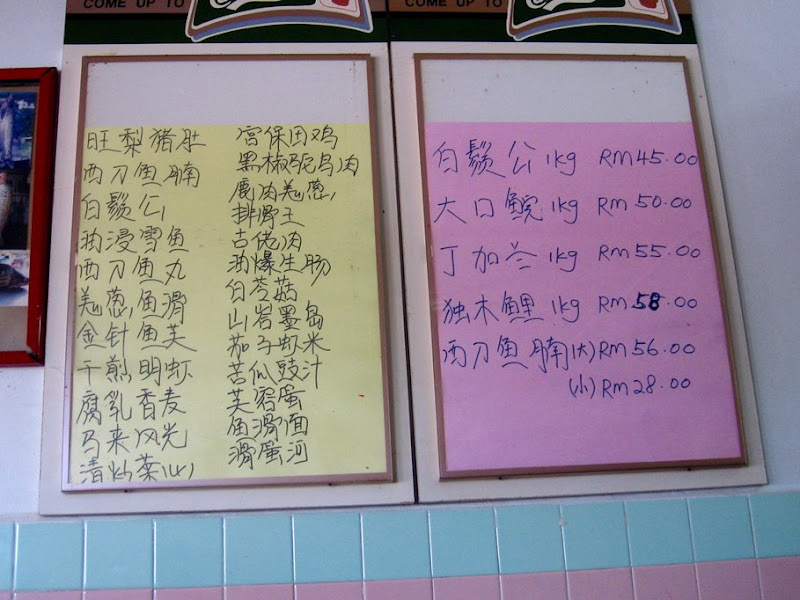 COME UP TO
COME UP TO
旺梨猪肚
西刀鱼腩
白鬚公
油浸雪鱼
西刀鱼丸
羌葱鱼滑
金针鱼芙
干煎明虾
腐乳香麦
马来风光
清炒菜心
宫保田鸡
黑椒鸵鸟肉
鹿肉羌葱
排骨王
古佬肉
油爆生肠
白苓菇
山岩墨岛
茄子虾米
苦瓜豉汁
芙容蛋
鱼滑面
滑蛋河
白鬚公 1kg RM 45.00
大口鯇 1kg RM 50.00
丁加兰 1kg RM 55.00
独木鲤 1kg RM 58.00
西刀鱼腩(大) RM 56.00
(小) RM 28.00